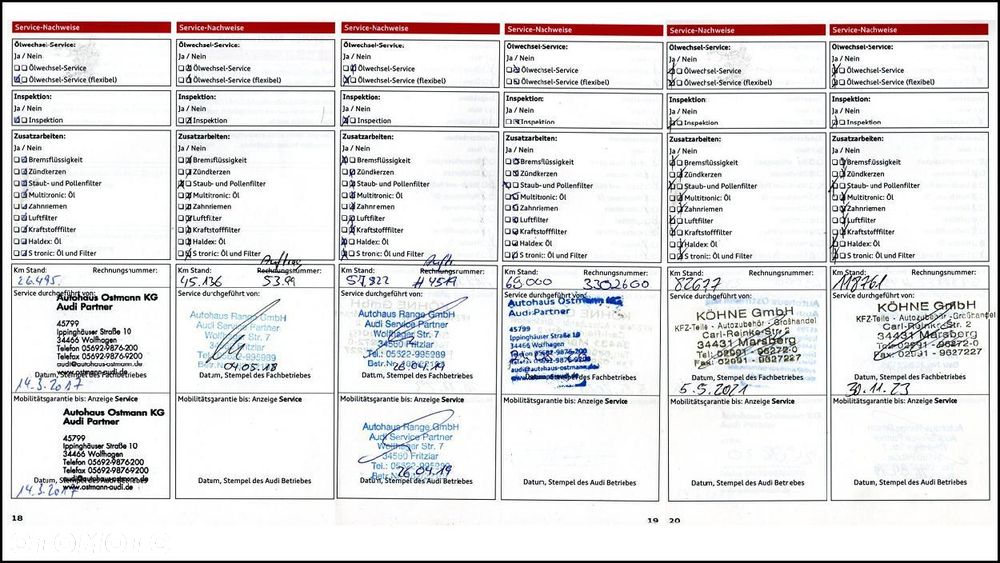 Service-Nachweise
Ölwechsel-Service:
Ja / Nein
Ölwechsel-Service
Ölwechsel-Service (flexibel)
Inspektion:
Ja / Nein
Inspektion
Zusatzarbeiten:
Ja / Nein
Bremsflüssigkeit
Zündkerzen
Staub- und Pollenfilter
Multitronic: Öl
Zahnriemen
Luftfilter
Kraftstofffilter
Haldex: Öl
S tronic: Öl und Filter
Km Stand: Rechnungsnummer:
26.495.
Service durchgeführt von:
Autohaus Ostmann KG
Audi Partner
45799
Ippinghäuser Straße 10
34466 Wolfhagen
Telefon 05692-9876200
Telefax 05692-98769200
audi@autohaus-ostmann.de
www.ostmann-audi.de
Datum, Stempel des Fachbetriebes
14.3.2017
Mobilitätsgarantie bis: Anzeige Service
Autohaus Ostmann KG
Audi Partner
45799
Ippinghäuser Straße 10
34466 Wolfhagen
Telefon 05692-9876200
Telefax 05692-98769200
audi@autohaus-ostmann.de
www.ostmann-audi.de
Datum, Stempel des Audi Betriebes
14.3.2017
18
Service-Nachweise
Ölwechsel-Service:
Ja / Nein
Ölwechsel-Service
Ölwechsel-Service (flexibel)
Inspektion:
Ja / Nein
Inspektion
Zusatzarbeiten:
Ja / Nein
Bremsflüssigkeit
Zündkerzen
Staub- und Pollenfilter
Multitronic: Öl
Zahnriemen
Luftfilter
Kraftstofffilter
Haldex: Öl
S tronic: Öl und Filter
Auftrag
Km Stand: Rechnungsnummer:
45.136 5399
Service durchgeführt von:
Autohaus Range GmbH
Audi Service Partner
Wolfhager Str. 7
34560 Fritzlar
Tel.: 05622-995989
04.05.18
Datum, Stempel des Fachbetriebes
Mobilitätsgarantie bis: Anzeige Service
Datum, Stempel des Audi Betriebes
Service-Nachweise
Ölwechsel-Service:
Ja / Nein
Ölwechsel-Service
Ölwechsel-Service (flexibel)
Inspektion:
Ja / Nein
Inspektion
Zusatzarbeiten:
Ja / Nein
Bremsflüssigkeit
Zündkerzen
Staub- und Pollenfilter
Multitronic: Öl
Zahnriemen
Luftfilter
Kraftstofffilter
Haldex: Öl
S tronic: Öl und Filter
Km Stand: Rechnungsnummer:
57.822
Service durchgeführt von:
Autohaus Range GmbH
Audi Service Partner
Wolfhager Str. 7
34560 Fritzlar
Tel.: 05622-995989
26.04.19
Datum, Stempel des Fachbetriebes
Mobilitätsgarantie bis: Anzeige Service
Autohaus Range GmbH
Audi Service Partner
Wolfhager Str. 7
34560 Fritzlar
26.04.19
Datum, Stempel des Audi Betriebes
Service-Nachweise
Ölwechsel-Service:
Ja / Nein
Ölwechsel-Service
Ölwechsel-Service (flexibel)
Inspektion:
Ja / Nein
Inspektion
Zusatzarbeiten:
Ja / Nein
Bremsflüssigkeit
Zündkerzen
Staub- und Pollenfilter
Multitronic: Öl
Zahnriemen
Luftfilter
Kraftstofffilter
Haldex: Öl
S tronic: Öl und Filter
Km Stand: Rechnungsnummer:
69000 3302600
Service durchgeführt von:
Autohaus Ostmann KG
Audi Partner
45799
Ippinghäuser Straße 10
34466 Wolfhagen
audi@autohaus-ostmann.de
Datum, Stempel des Fachbetriebes
Mobilitätsgarantie bis: Anzeige Service
Datum, Stempel des Audi Betriebes
19
Service-Nachweise
Ölwechsel-Service:
Ja / Nein
Ölwechsel-Service
Ölwechsel-Service (flexibel)
Inspektion:
Ja / Nein
Inspektion
Zusatzarbeiten:
Ja / Nein
Bremsflüssigkeit
Zündkerzen
Staub- und Pollenfilter
Multitronic: Öl
Zahnriemen
Luftfilter
Kraftstofffilter
Haldex: Öl
S tronic: Öl und Filter
Km Stand: Rechnungsnummer:
82677
Service durchgeführt von:
KÖHNE GmbH
KFZ-Teile - Autozubehör - Großhandel
Carl-Reinke-Str. 2
34431 Marsberg
Tel: 02991 - 96272-0
Fax: 02991 - 9627227
Datum, Stempel des Fachbetriebes
5.5.2021
Mobilitätsgarantie bis: Anzeige Service
Datum, Stempel des Audi Betriebes
20
Service-Nachweise
Ölwechsel-Service:
Ja / Nein
Ölwechsel-Service
Ölwechsel-Service (flexibel)
Inspektion:
Ja / Nein
Inspektion
Zusatzarbeiten:
Ja / Nein
Bremsflüssigkeit
Zündkerzen
Staub- und Pollenfilter
Multitronic: Öl
Zahnriemen
Luftfilter
Kraftstofffilter
Haldex: Öl
S tronic: Öl und Filter
Km Stand: Rechnungsnummer:
118761
Service durchgeführt von:
KÖHNE GmbH
KFZ-Teile - Autozubehör - Großhandel
Carl-Reinke-Str. 2
34431 Marsberg
Tel: 02991 - 96272-0
Fax: 02991 - 9627227
Datum, Stempel des Fachbetriebes
30.11.23
Mobilitätsgarantie bis: Anzeige Service
Datum, Stempel des Audi Betriebes